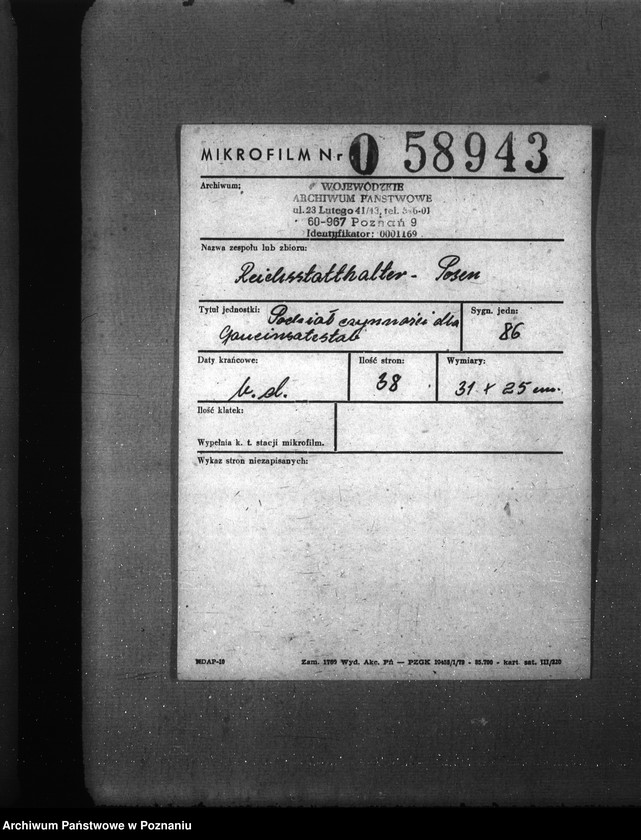 MIKROFILM Nr 0 58943
Archiwum:
WOJEWÓDZKIE
ARCHIWUM PAŃSTWOWE
ul. 23 Lutego 41/43, tel.
60-967 Poznań 9
Identyfikator: 0001169
Nazwa zespołu lub zbioru:
Reichsstatthalter - Posen
Tytuł jednostki: Podział czynności dla
Gaueinsatzstab
Sygn. jedn:
86
Daty krańcowe:
b.d.
Ilość stron:
38
Wymiary:
31 x 25 cm.
Ilość klatek:
Wypełnia k. t. stacji mikrofilm.
Wykaz stron niezapisanych:
MDAP-10
Zam. Wyd. Akc. Pń — PZGK - kart. sat.
Archiwum Państwowe w Poznaniu